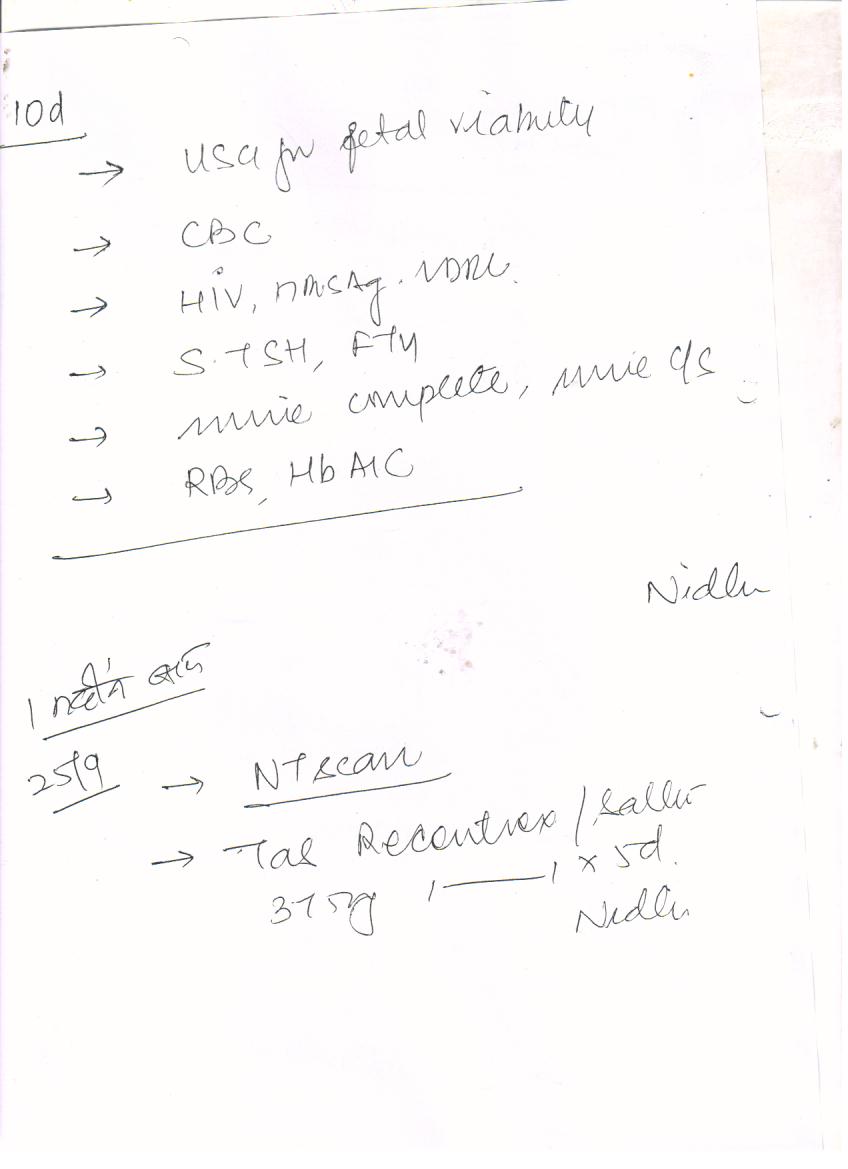 10d
→ USG for fetal viability
→ CBC
→ HIV, HBsAg. VDRL.
→ S. TSH, FT4
→ urine complete, urine c/s
→ RBS, HbA1C
Nidhi
1
25/9 → NT scan
→ Tab
375mg 1——1 x 5d.
Nidhi